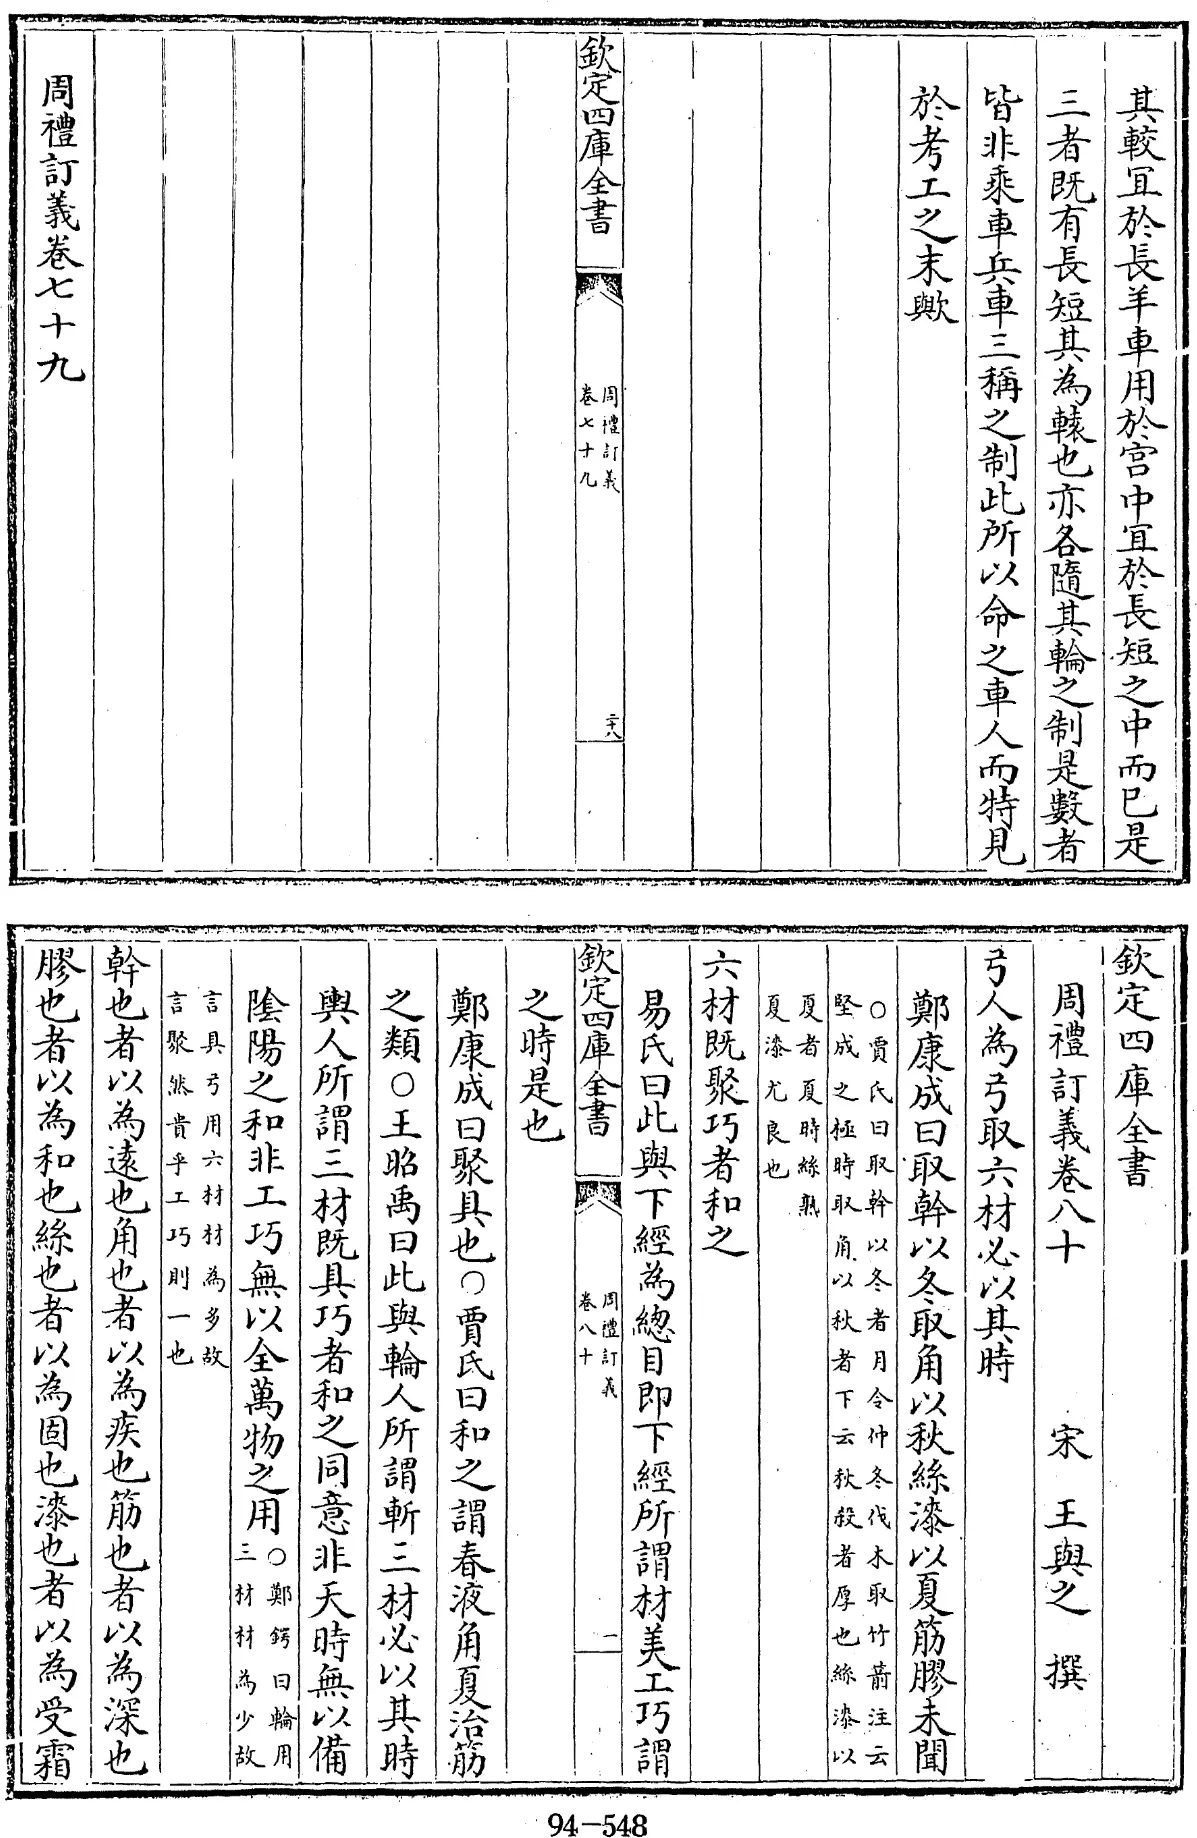 其較宜於長羊車用於宮中宜於長短之中而已是
三者既有長短其為轅也亦各隨其輪之制是數者
皆非乘車兵車三稱之制此所以命之車人而特見
於考工之末歟
欽定四庫全書
周禮訂義
卷七十九
二十八
周禮訂義卷七十九
欽定四庫全書
周禮訂義卷八十 宋 王與之 撰
弓人為弓取六材必以其時
鄭康成曰取幹以冬取角以秋絲漆以夏筋膠未聞
○賈氏曰取幹以冬者月令仲冬伐木取竹箭注云
堅成之極時取角以秋者下云秋殺者厚也絲漆以
夏者夏時絲熟
夏漆尤良也
六材既聚巧者和之
易氏曰此與下經為總目即下經所謂材美工巧謂
欽定四庫全書
周禮訂義
卷八十
一
之時是也
鄭康成曰聚具也○賈氏曰和之謂春液角夏治筋
之類○王昭禹曰此與輪人所謂斬三材必以其時
輿人所謂三材既具巧者和之同意非天時無以備
陰陽之和非工巧無以全萬物之用
○鄭鍔曰輪用
三材材為少故
言具弓用六材材為多故
言聚然貴乎工巧則一也
幹也者以為遠也角也者以為疾也筋也者以為深也
膠也者以為和也絲也者以為固也漆也者以為受霜
94-548